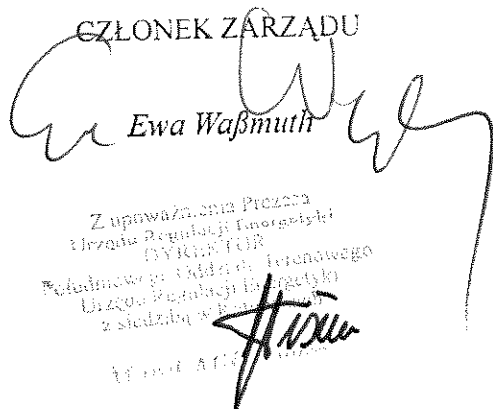 CZŁONEK ZARZĄDU
Ewa Waßmuth
Z upoważnienia Prezesa
Urzędu Regulacji Energetyki
DYREKTOR
Południowego Oddziału Terenowego
Urzędu Regulacji Energetyki
z siedzibą w